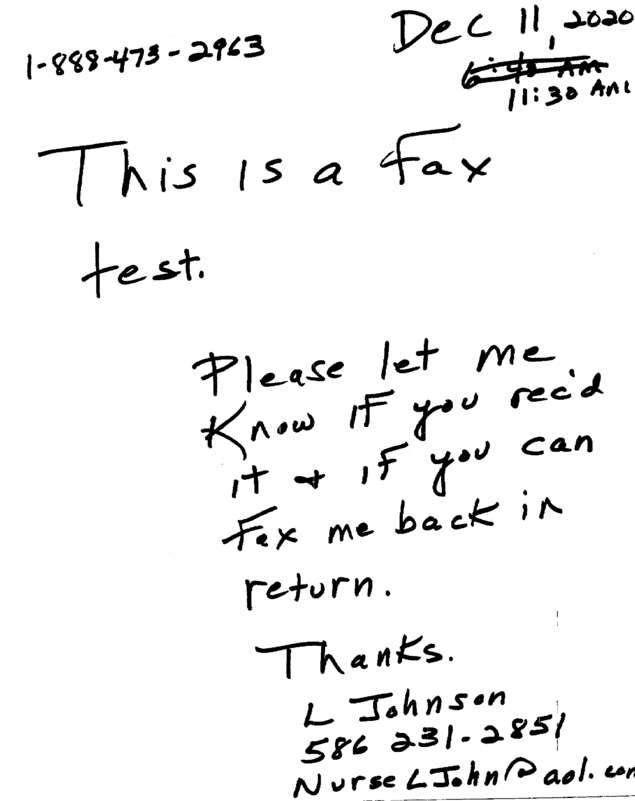 1-888-473-2963
Dec 11, 2020
6:40 AM
11:30 AM
This is a Fax
test.
Please let me
Know if you rec'd
it + if you can
Fax me back in
return.
Thanks.
L Johnson
586 231-2851
NurseLJohn@aol.com